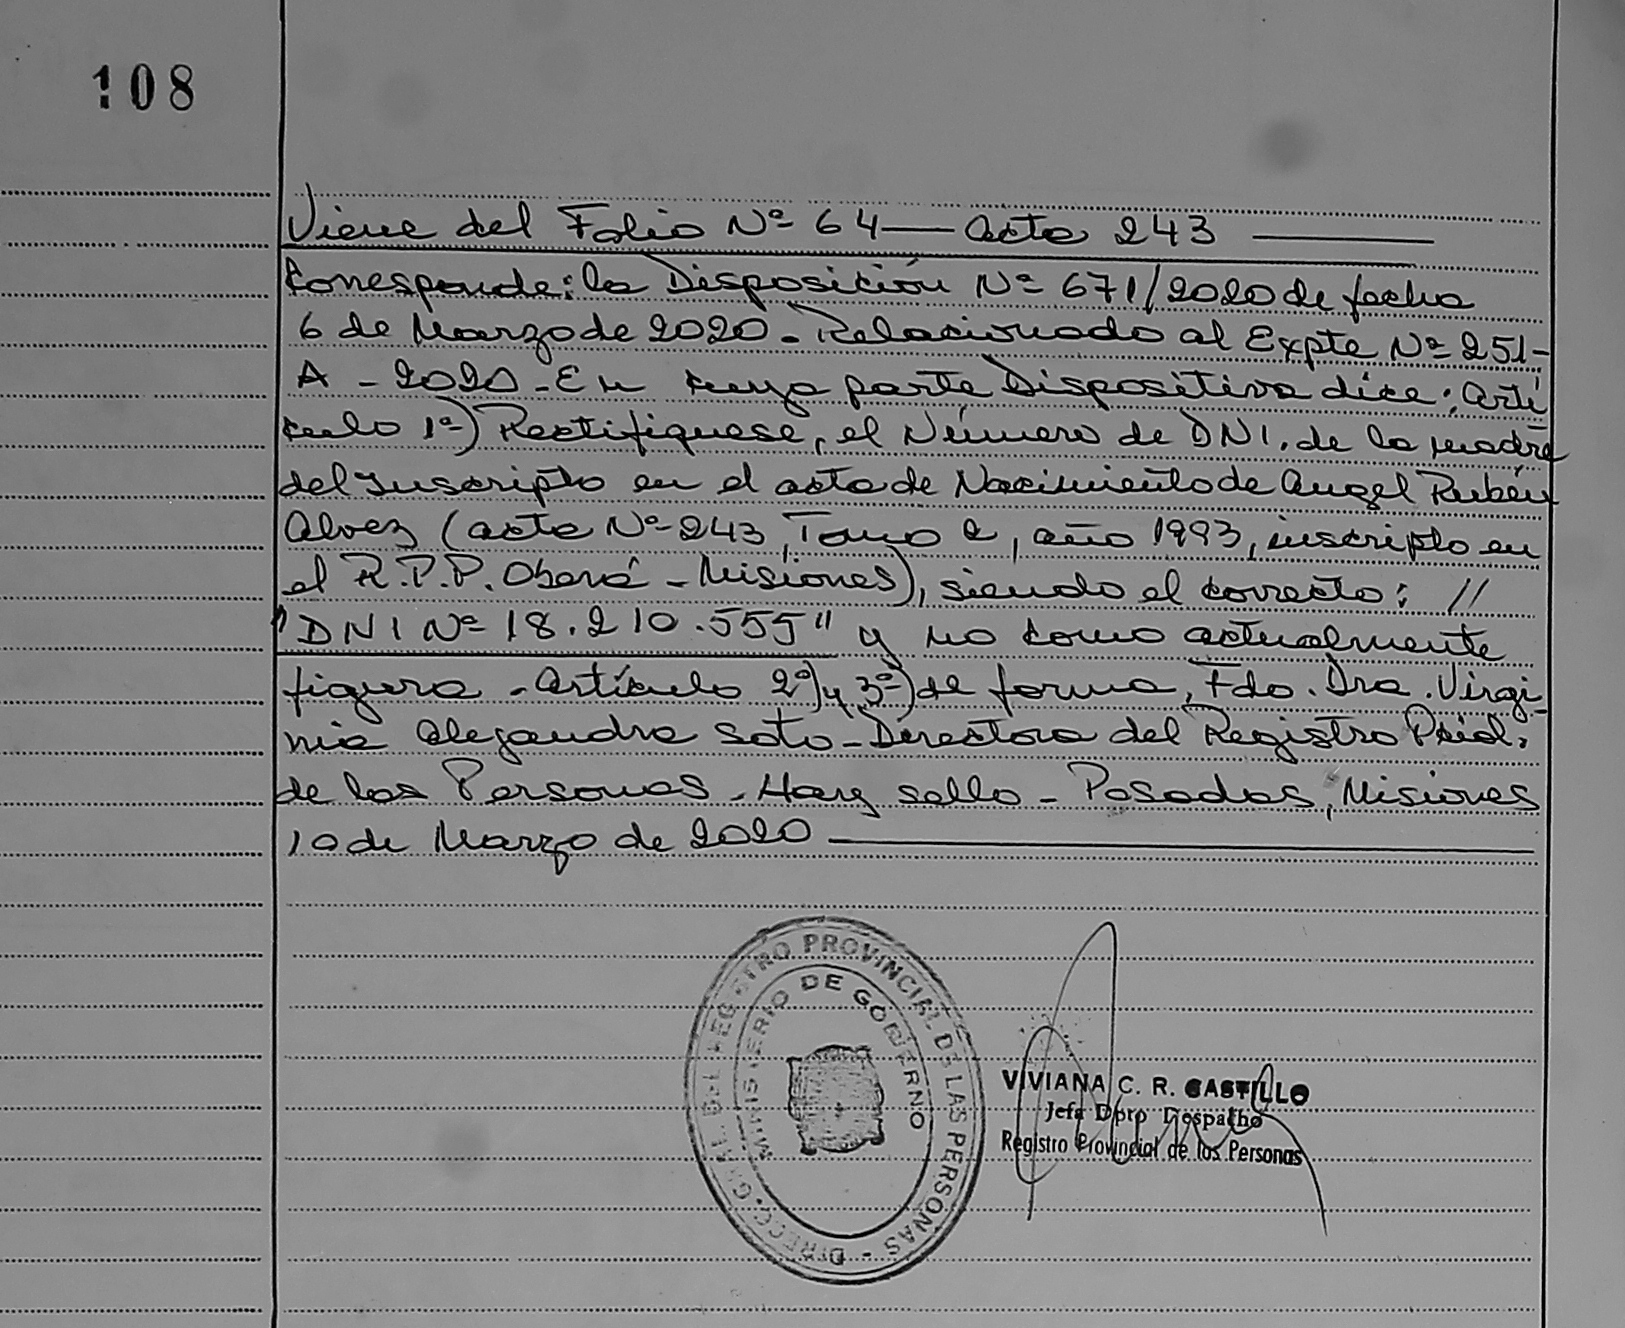 108
Viene del Folio Nº 64 — acta 243 —
Corresponde: la Disposición Nº 671/2020 de fecha
6 de Marzo de 2020 - Relacionado al Expte Nº 251-
A - 2020 - En cuya parte Dispositiva dice: Artí
culo 1º) Rectifiquese, el Número de DNI. de la madre
del Inscripto en el acta de Nacimiento de Angel Rubén
Alvez (acta Nº 243, Tomo 2, año 1993, inscripto en
el R.P.P. Oberá - Misiones), siendo el correcto: //
"DNI Nº 18.210.555" y no como actualmente
figura - Artículo 2º) y 3º) de forma, Fdo. Dra. Virgi-
nia Alejandra Soto - Directora del Registro Pcial.
de las Personas - Hay sello - Posadas, Misiones
10 de Marzo de 2020 —
DIRECC. GRAL. DEL REGISTRO PROVINCIAL DE LAS PERSONAS -
MINISTERIO DE GOBIERNO
VIVIANA C. R. CASTILLO
Jefa Dpto Despacho
Registro Provincial de las Personas